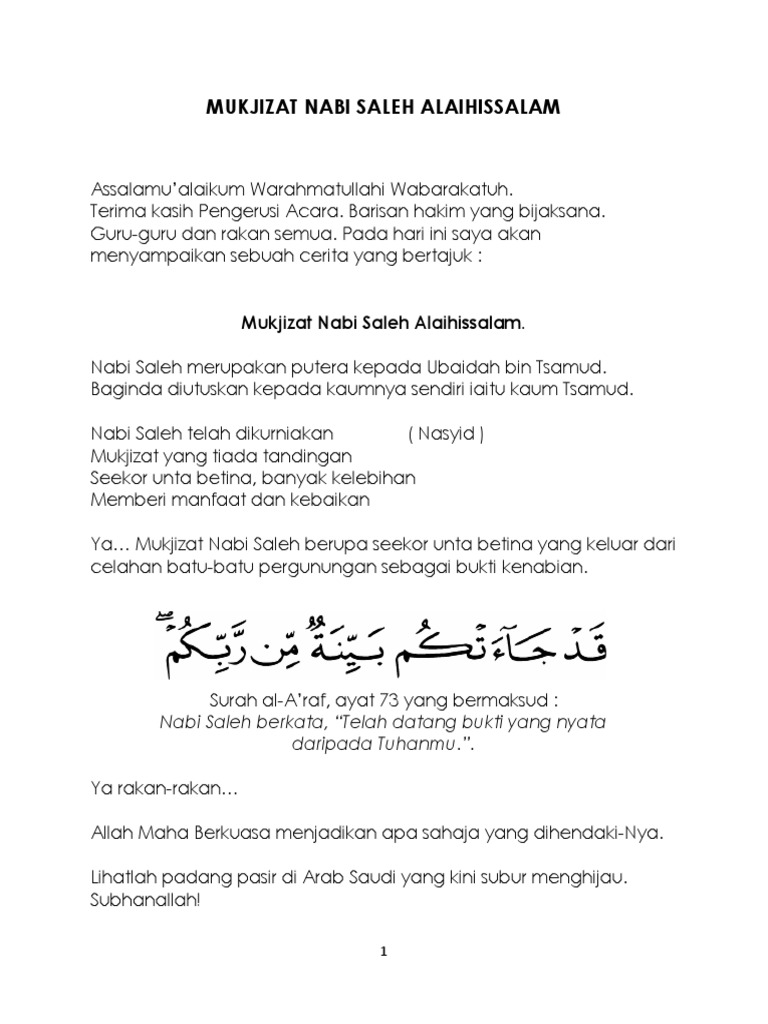 MUKJIZAT NABI SALEH ALAIHISSALAM
Assalamu’alaikum Warahmatullahi Wabarakatuh.
Terima kasih Pengerusi Acara. Barisan hakim yang bijaksana.
Guru-guru dan rakan semua. Pada hari ini saya akan
menyampaikan sebuah cerita yang bertajuk :
Mukjizat Nabi Saleh Alaihissalam.
Nabi Saleh merupakan putera kepada Ubaidah bin Tsamud.
Baginda diutuskan kepada kaumnya sendiri iaitu kaum Tsamud.
Nabi Saleh telah dikurniakan ( Nasyid )
Mukjizat yang tiada tandingan
Seekor unta betina, banyak kelebihan
Memberi manfaat dan kebaikan
Ya… Mukjizat Nabi Saleh berupa seekor unta betina yang keluar dari
celahan batu-batu pergunungan sebagai bukti kenabian.
قَدْ جَآءَتْكُم بَيِّنَةٌ مِّن رَّبِّكُمْ ۖ
Surah al-A’raf, ayat 73 yang bermaksud :
Nabi Saleh berkata, “Telah datang bukti yang nyata
daripada Tuhanmu.”.
Ya rakan-rakan…
Allah Maha Berkuasa menjadikan apa sahaja yang dihendaki-Nya.
Lihatlah padang pasir di Arab Saudi yang kini subur menghijau.
Subhanallah!
1